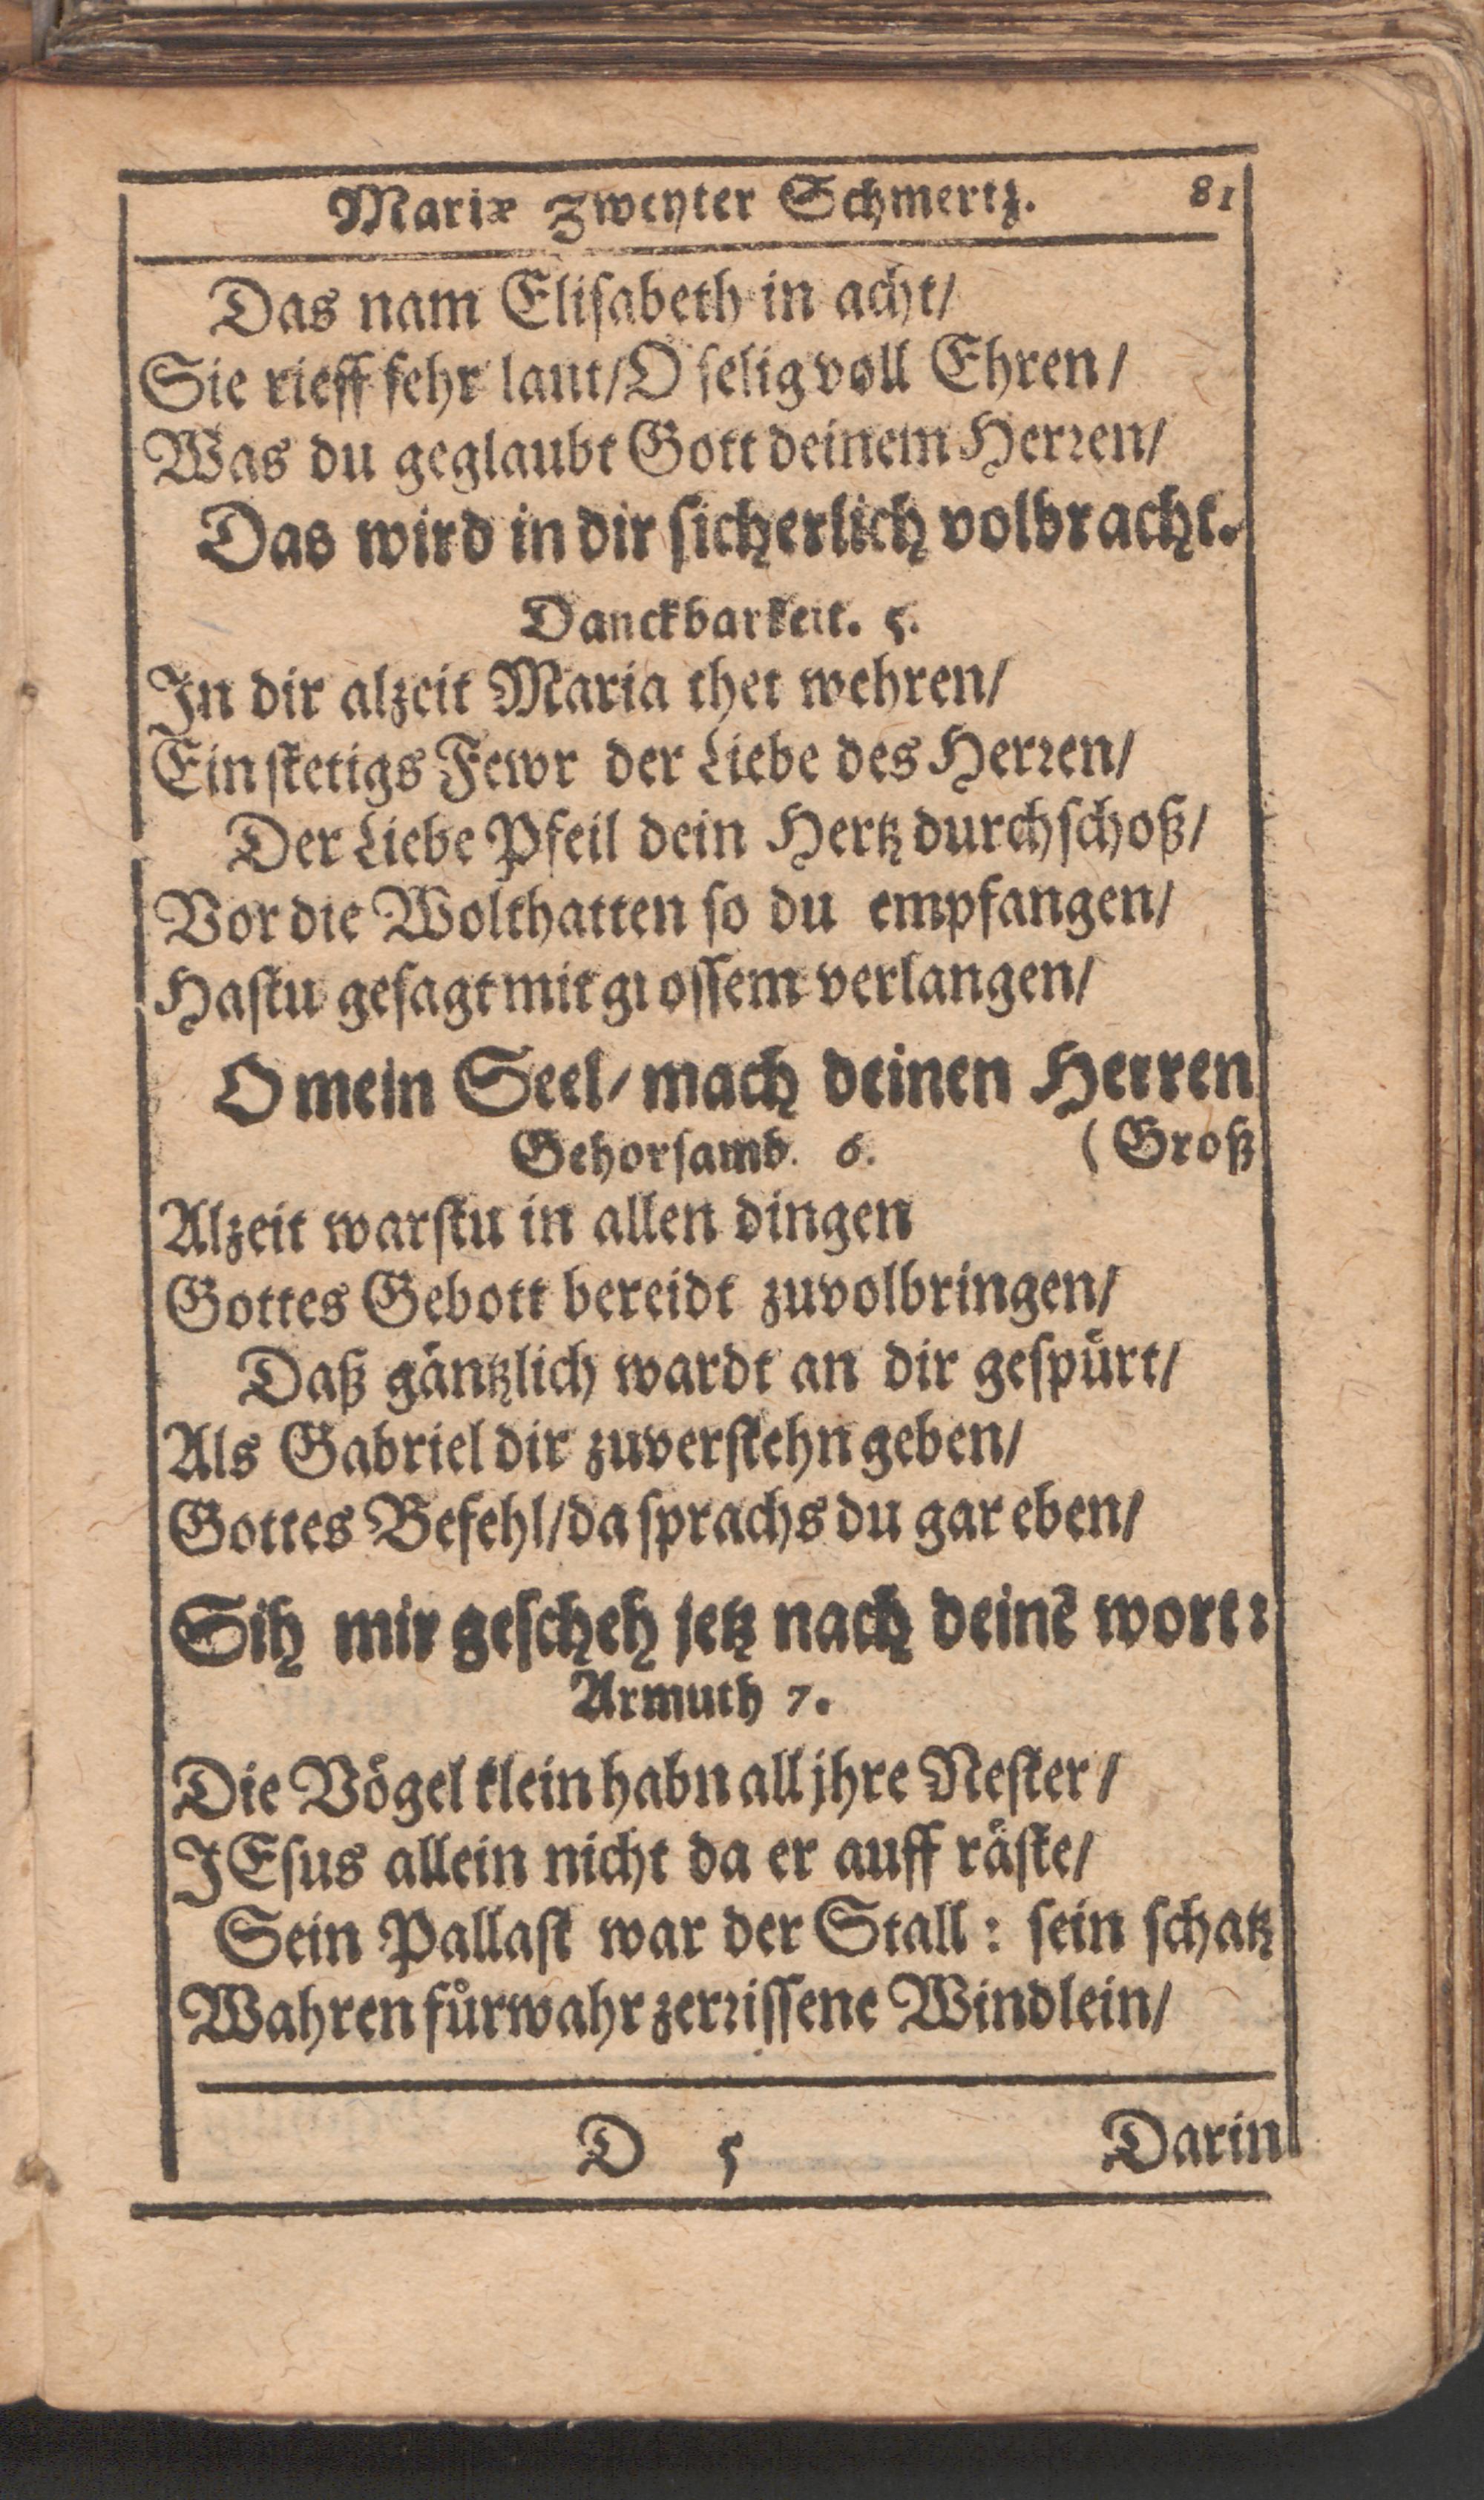 Mariæ Zweyter Schmertz. 81
Das nam Elisabeth in acht/
Sie rieff sehr laut/O selig voll Ehren/
Was du geglaubt Gott deinem Herren/
Das wird in dir sicherlich volbracht.
Danckbarkeit. 5.
In dir alzeit Maria thet wehren/
Ein stetigs Fewr der Liebe des Herren/
Der Liebe Pfeil dein Hertz durchschoß/
Vor die Wolthatten so du empfangen/
Hastu gesagt mit grossem verlangen/
O mein Seel/ mach deinen Herren
Gehorsamb. 6. (Groß
Alzeit warstu in allen dingen
Gottes Gebott bereidt zuvolbringen/
Daß gäntzlich wardt an dir gespürt/
Als Gabriel dir zuverstehn geben/
Gottes Befehl/da sprachs du gar eben/
Sih mir gescheh jetz nach deinē wort:
Armuth 7.
Die Vögel klein habn all jhre Nester/
JEsus allein nicht da er auff räste/
Sein Pallast war der Stall: sein schatz
Wahren fůrwahr zerrissene Windlein/
D 5 Darin